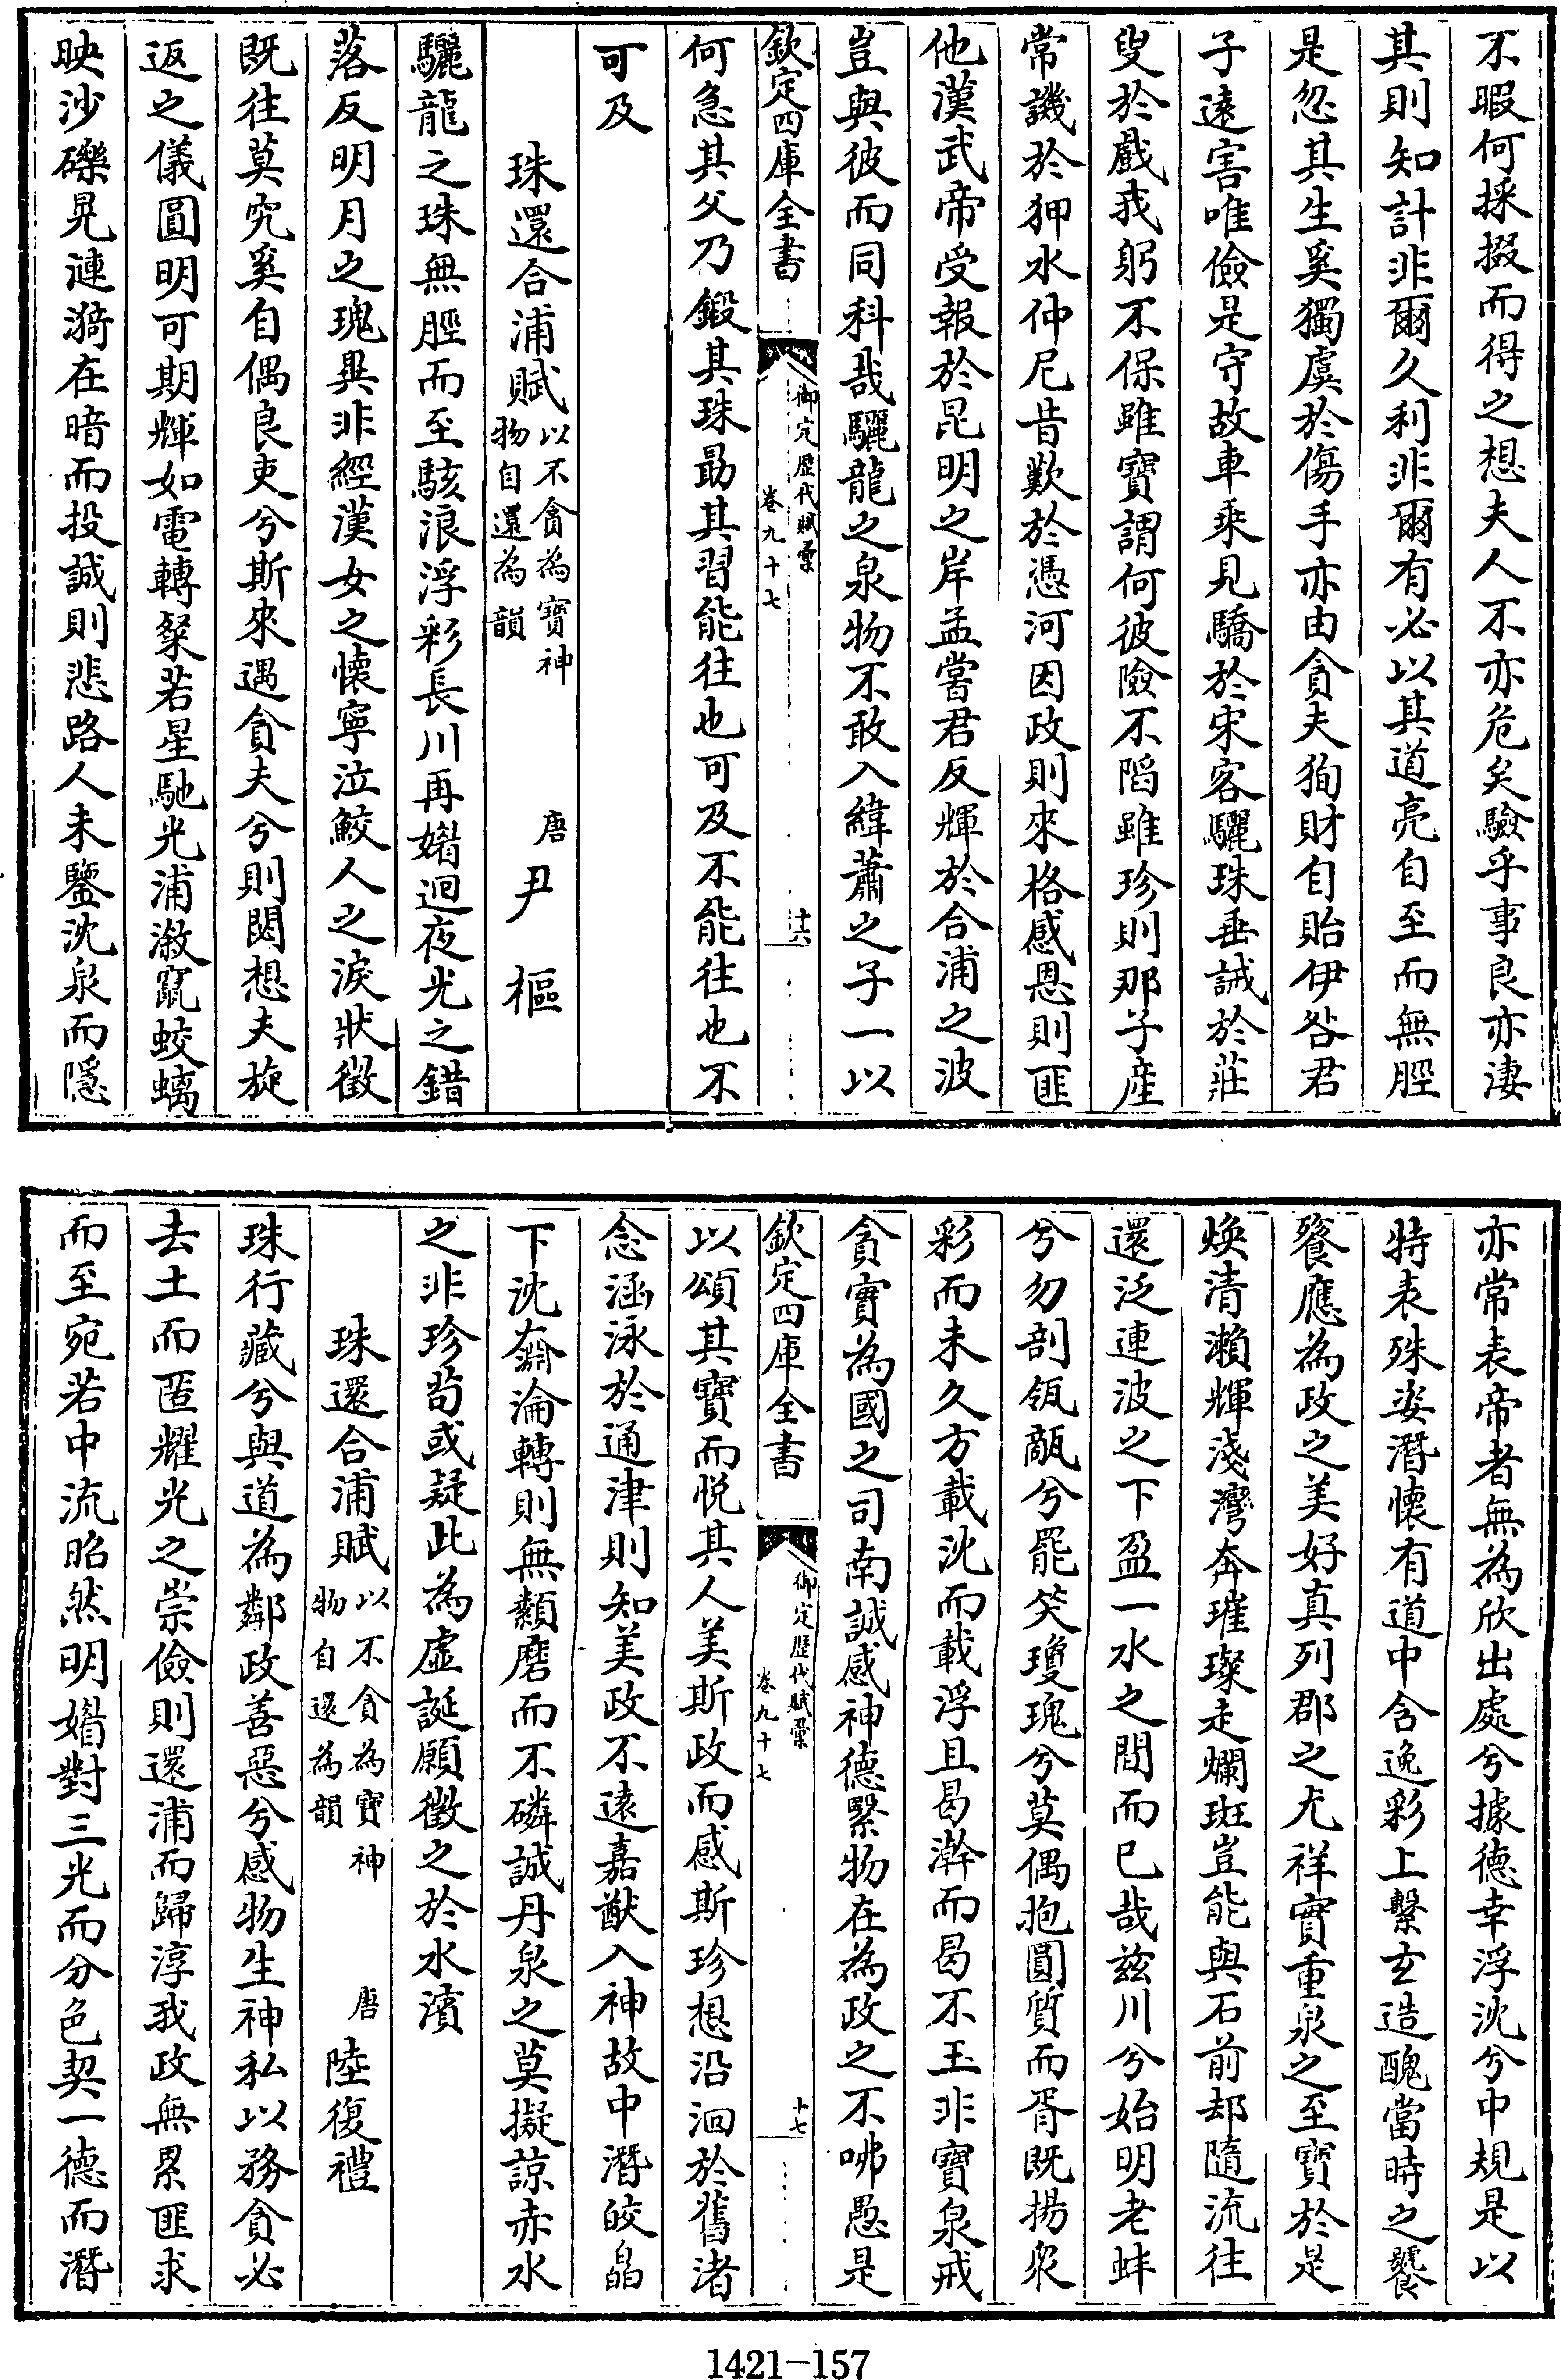 不暇何採掇而得之想夫人不亦危矣驗乎事良亦淒
其則知計非爾久利非爾有必以其道亮自至而無脛
是忽其生奚獨虞於傷手亦由貪夫狥財自貽伊咎君
子遠害唯儉是守故車乘見驕於宋客驪珠垂誡於莊
叟於戲我躬不保雖寶謂何彼險不陷雖珍則那子產
常譏於狎水仲尼昔歎於憑河因政則來格感恩則匪
他漢武帝受報於昆明之岸孟嘗君反輝於合浦之波
豈與彼而同科哉驪龍之泉物不敢入緯蕭之子一以
欽定四庫全書
御定歷代賦彙
卷九十七
十六
何急其父乃鍛其珠勗其習能往也可及不能往也不
可及
珠還合浦賦
以不貪為寶神
物自還為韻
唐
尹樞
驪龍之珠無脛而至駭浪浮彩長川再媚迴夜光之錯
落反明月之瑰異非經漢女之懷寧泣鮫人之淚狀徵
既往莫究奚自偶良吏兮斯來遇貪夫兮則閟想夫旋
返之儀圓明可期輝如電轉粲若星馳光浦漵竄蛟螭
映沙礫晃漣漪在暗而投誠則悲路人未鑒沈泉而隱
亦常表帝者無為欣出處兮據德幸浮沈兮中規是以
特表殊姿潛懷有道中含逸彩上繫玄造醜當時之饕
餮應為政之美好真列郡之尤祥實重泉之至寶於是
煥清瀨輝淺灣奔璀璨走斕斑豈能與石前却隨流往
還泛連波之下盈一水之間而已哉兹川兮始明老蚌
兮勿剖瓴甋兮罷笑瓊瑰兮莫偶抱圓質而胥既揚衆
彩而未久方載沈而載浮且曷澣而曷不玉非寶泉戒
貪實為國之司南誠感神德繫物在為政之不咈愚是
欽定四庫全書
御定歷代賦彙
卷九十七
十七
以頌其寶而悅其人美斯政而感斯珍想沿洄於舊渚
念涵泳於通津則知美政不遠嘉猷入神故中潛皎皛
下沈奫淪轉則無纇磨而不磷誠丹泉之莫擬諒赤水
之非珍苟或疑此為虛誕願徵之於水濱
珠還合浦賦
以不貪為寶神
物自還為韻
唐
陸復禮
珠行藏兮與道為鄰政善惡兮感物生神私以務貪必
去土而匿耀光之崇儉則還浦而歸淳我政無累匪求
而至宛若中流昭然明媚對三光而分色契一德而潛
1421-157